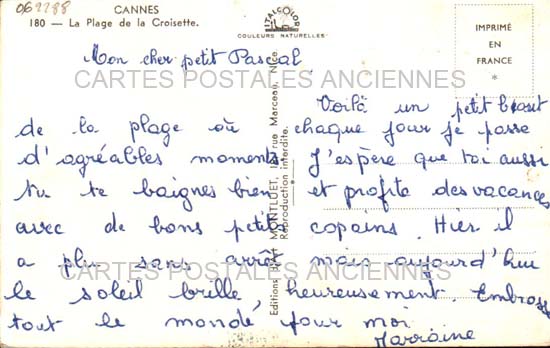 069288
CANNES
180 — La Plage de la Croisette.
ITALCOLOR
COULEURS NATURELLES
IMPRIMÉ
EN
FRANCE
*
Mon cher petit Pascal.
CARTES POSTALES ANCIENNES
Voilà un petit bout
de la plage où chaque jour je passe
d'agréables moments. J'espère que toi aussi
tu te baignes bien et profite des vacances
avec de bons petits copains. Hier il
a plu sans arrêt mais aujourd'hui
CARTES POSTALES ANCIENNES
le soleil brille, heureusement. Embrasse
tout le monde pour moi
Marraine
Editions d'art MONTLUET, rue Marceau, Nice
Reproduction interdite.